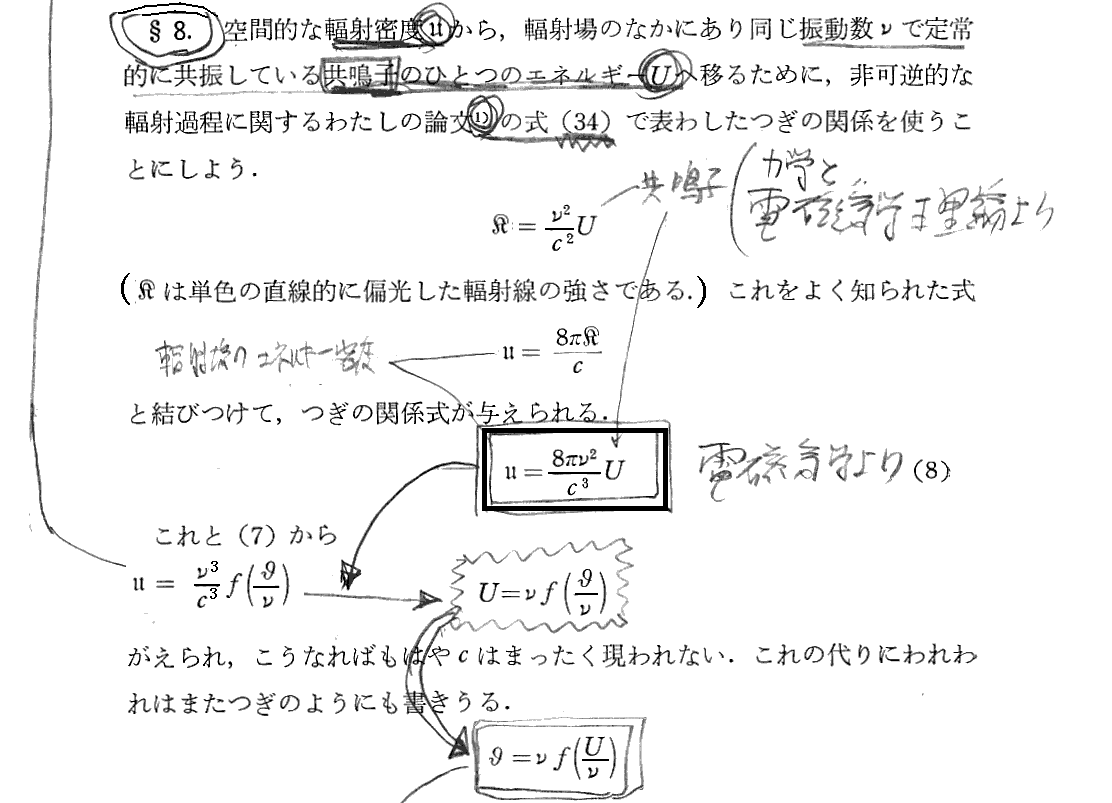 § 8. 空間的な輻射密度 𝔲 から，輻射場のなかにあり同じ振動数 ν で定常
的に共振している共鳴子のひとつのエネルギー U へ移るために，非可逆的な
輻射過程に関するわたしの論文¹⁾の式（34）で表わしたつぎの関係を使うこ
とにしよう．
共鳴子 (力学と
電磁気学は理論より
𝔎 = ν²/c² U
(𝔎 は単色の直線的に偏光した輻射線の強さである.) これをよく知られた式
輻射場のエネルギー密度
𝔲 = 8π𝔎/c
と結びつけて，つぎの関係式が与えられる．
𝔲 = 8πν²/c³ U
電磁気学より (8)
これと（7）から
𝔲 = ν³/c³ f(ϑ/ν)
U = ν f(ϑ/ν)
がえられ，こうなればもはや c はまったく現われない．これの代りにわれわ
れはまたつぎのようにも書きうる．
ϑ = ν f(U/ν)